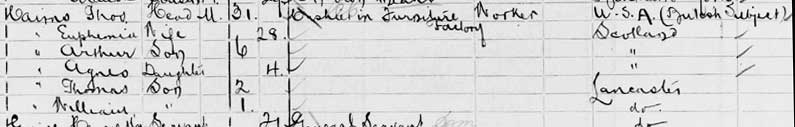 Hairns Thos Head M. 31. in Furniture Factory Worker U.S.A. (British Subject)
" Euphemia Wife 28. Scotland
" Arthur Son 6 "
" Agnes Daughter 4. "
" Thomas Son 2 Lancaster
" William " 1. do.
Servant 21 General Servant do